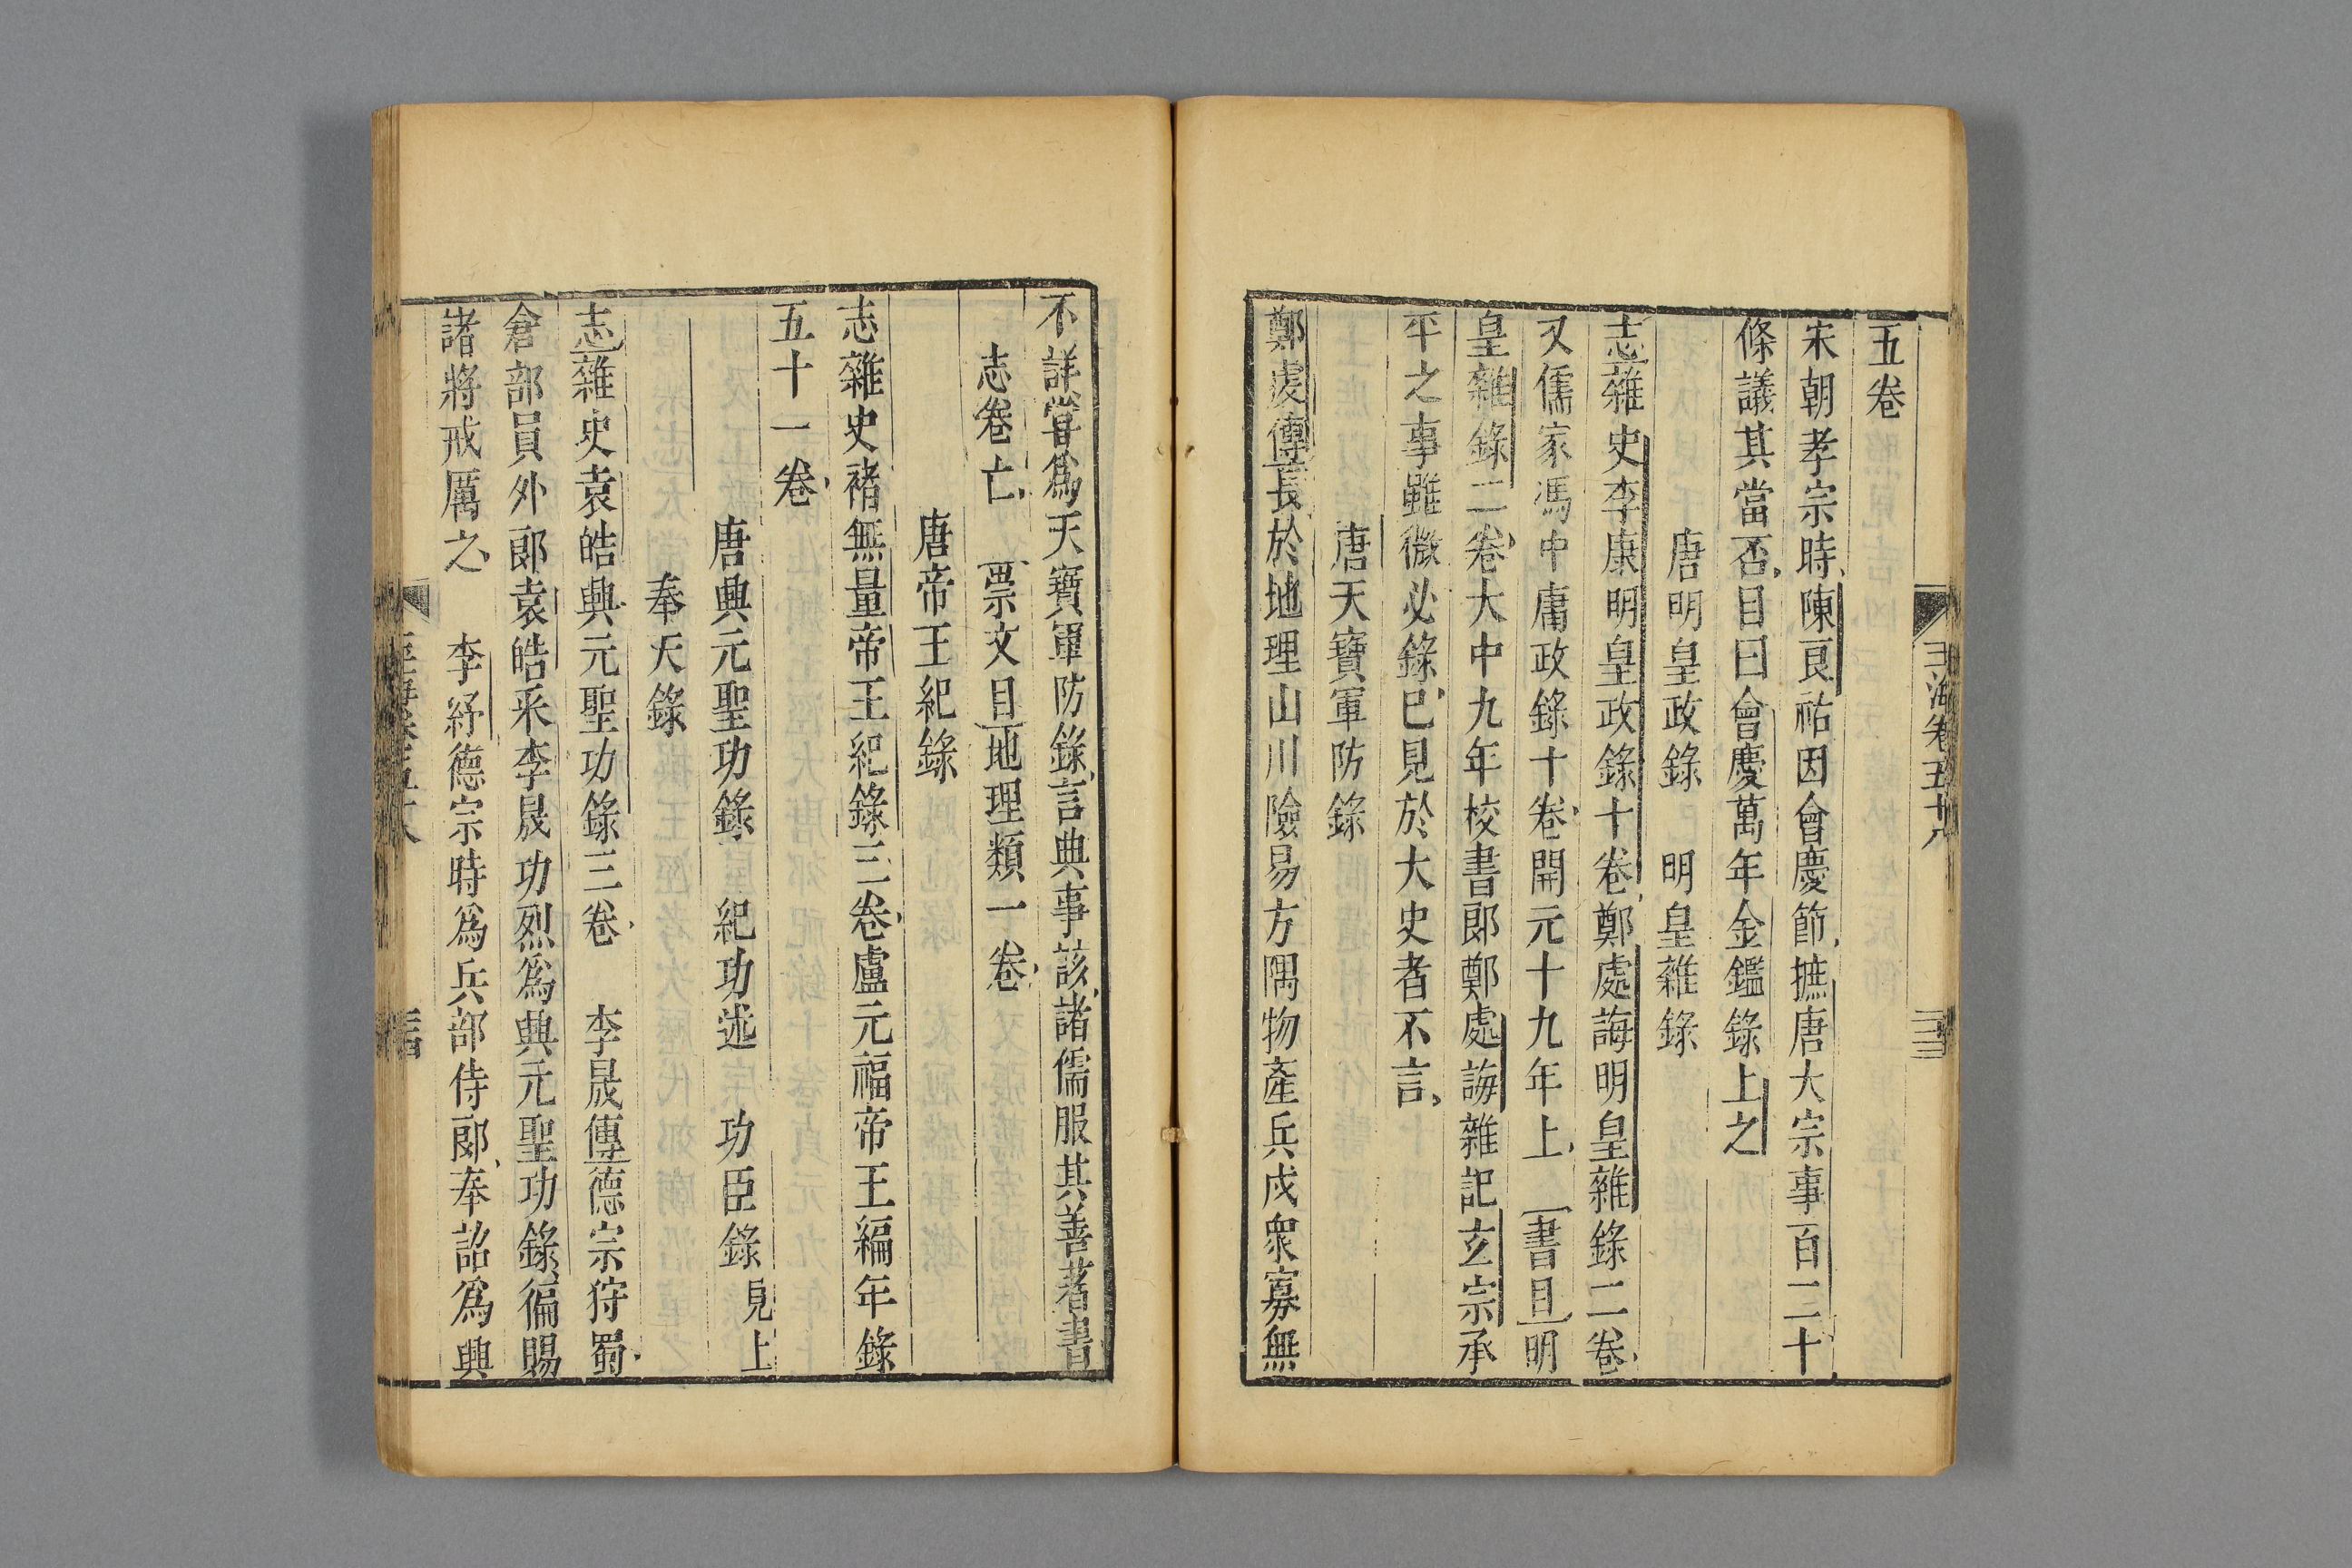 玉海卷五十八
三三
五卷
宋朝孝宗時陳良祐因會慶節摭唐太宗事百二十
條議其當否目曰會慶萬年金鑑錄上之
唐明皇政錄　明皇雜錄
志雜史李康明皇政錄十卷鄭處誨明皇雜錄二卷
又儒家馮中庸政錄十卷開元十九年上　書目明
皇雜錄二卷大中九年校書郎鄭處誨雜記玄宗承
平之事雖微必錄已見於大史者不言
唐天寶軍防錄
鄭虔傳長於地理山川險易方隅物產兵戍衆寡無
不詳嘗爲天寶軍防錄言典事該諸儒服其善著書
志卷亡　崇文目地理類一卷
唐帝王紀錄
志雜史褚無量帝王紀錄三卷盧元福帝王編年錄
五十一卷
唐興元聖功錄　紀功述　功臣錄見上
奉天錄
志雜史袁皓興元聖功錄三卷　李晟傳德宗狩蜀
倉部員外郎袁皓采李晟功烈爲興元聖功錄徧賜
諸將戒厲之　李紓德宗時爲兵部侍郎奉詔爲興
三四